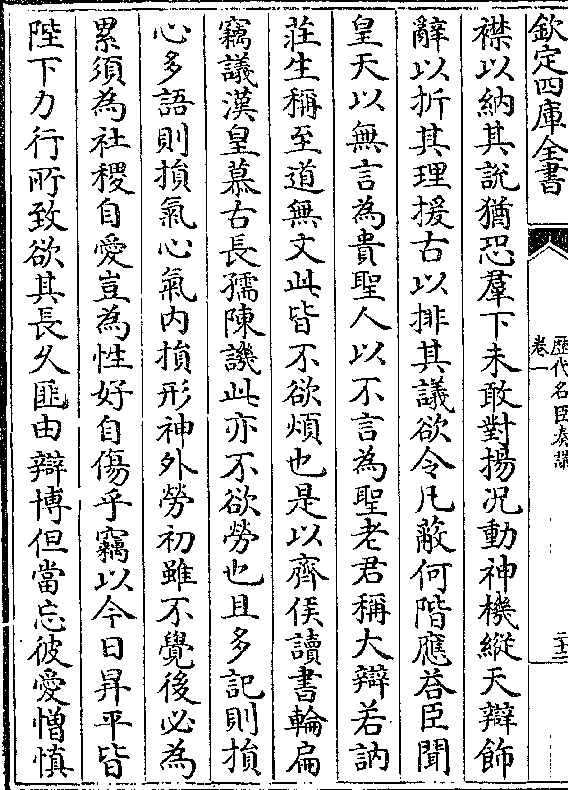 欽定四庫全書
歴代名臣奏議
卷一
二十三
襟以納其説猶恐羣下未敢對揚况動神機縱天辯飾
辭以折其理援古以排其議欲令凡蔽何階應荅臣聞
皇天以無言為貴聖人以不言為聖老君稱大辯若訥
莊生稱至道無文此皆不欲煩也是以齊侯讀書輪扁
竊議漢皇慕古長孺陳譏此亦不欲勞也且多記則損
心多語則損氣心氣内損形神外勞初雖不覺後必為
累須為社稷自愛豈為性好自傷乎竊以今日昇平皆
陛下力行所致欲其長久匪由辯博但當忘彼愛憎慎